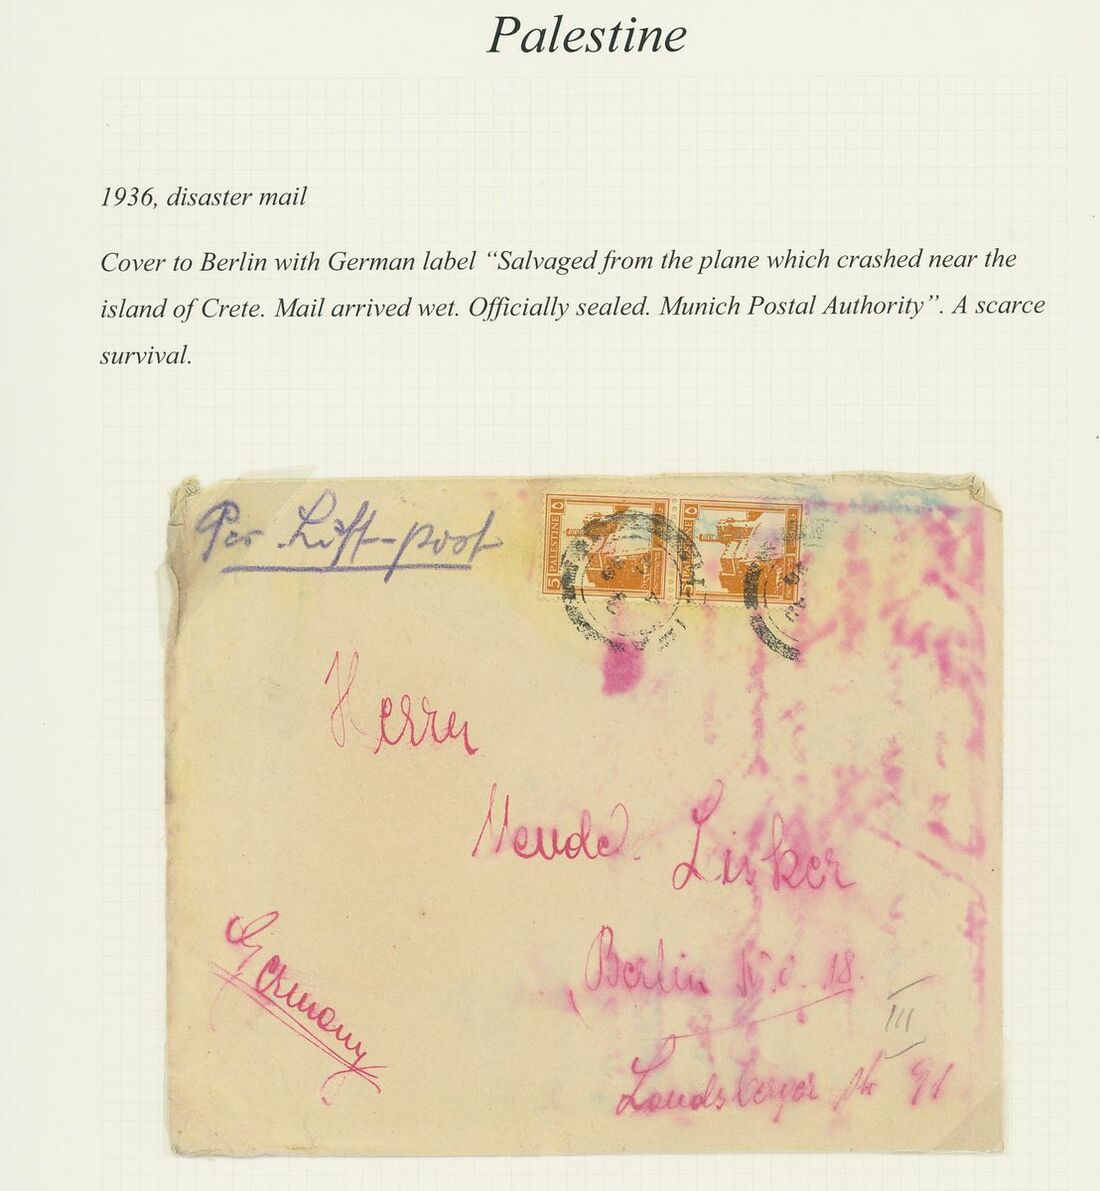 Palestine
1936, disaster mail
Cover to Berlin with German label “Salvaged from the plane which crashed near the
island of Crete. Mail arrived wet. Officially sealed. Munich Postal Authority”. A scarce
survival.
Per Luft-post
5 PALESTINE
Herrn
Lisker
Germany
Berlin N.O. 18.
III
Landsberger Str 91